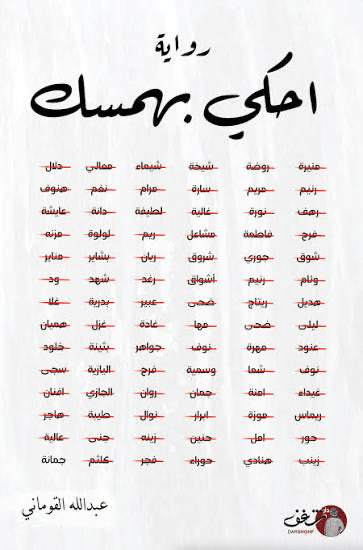 رواية
احكي بهمسك
منيرة روضة شيخة شيماء معالي دلال
رنيم مريم سارة مرام نغم هنوف
رهف نورة غالية لطيفة دانة عايشة
فرح فاطمة مشاعل ريم لولوة مزنه
شوق حوري شروق ريان بشاير مناير
وئام رنيم أشواق رغد شهد ود
هديل ريتاج ضحى عبير بدرية علا
ليلى ضحى مها غادة غزل هميان
عنود مهرة نوف جواهر بثينة خلود
نوف شما وسمية فرح اليازية سجى
غيداء امنة جمان روان الجازي افنان
ريماس موزة ابرار نوال طيبة هاجر
حور امل حنين زينه جنى عالية
زينب هنادي حوراء فجر كلثم جمانة
عبدالله القوماني
دار شغف
DARSHGHF